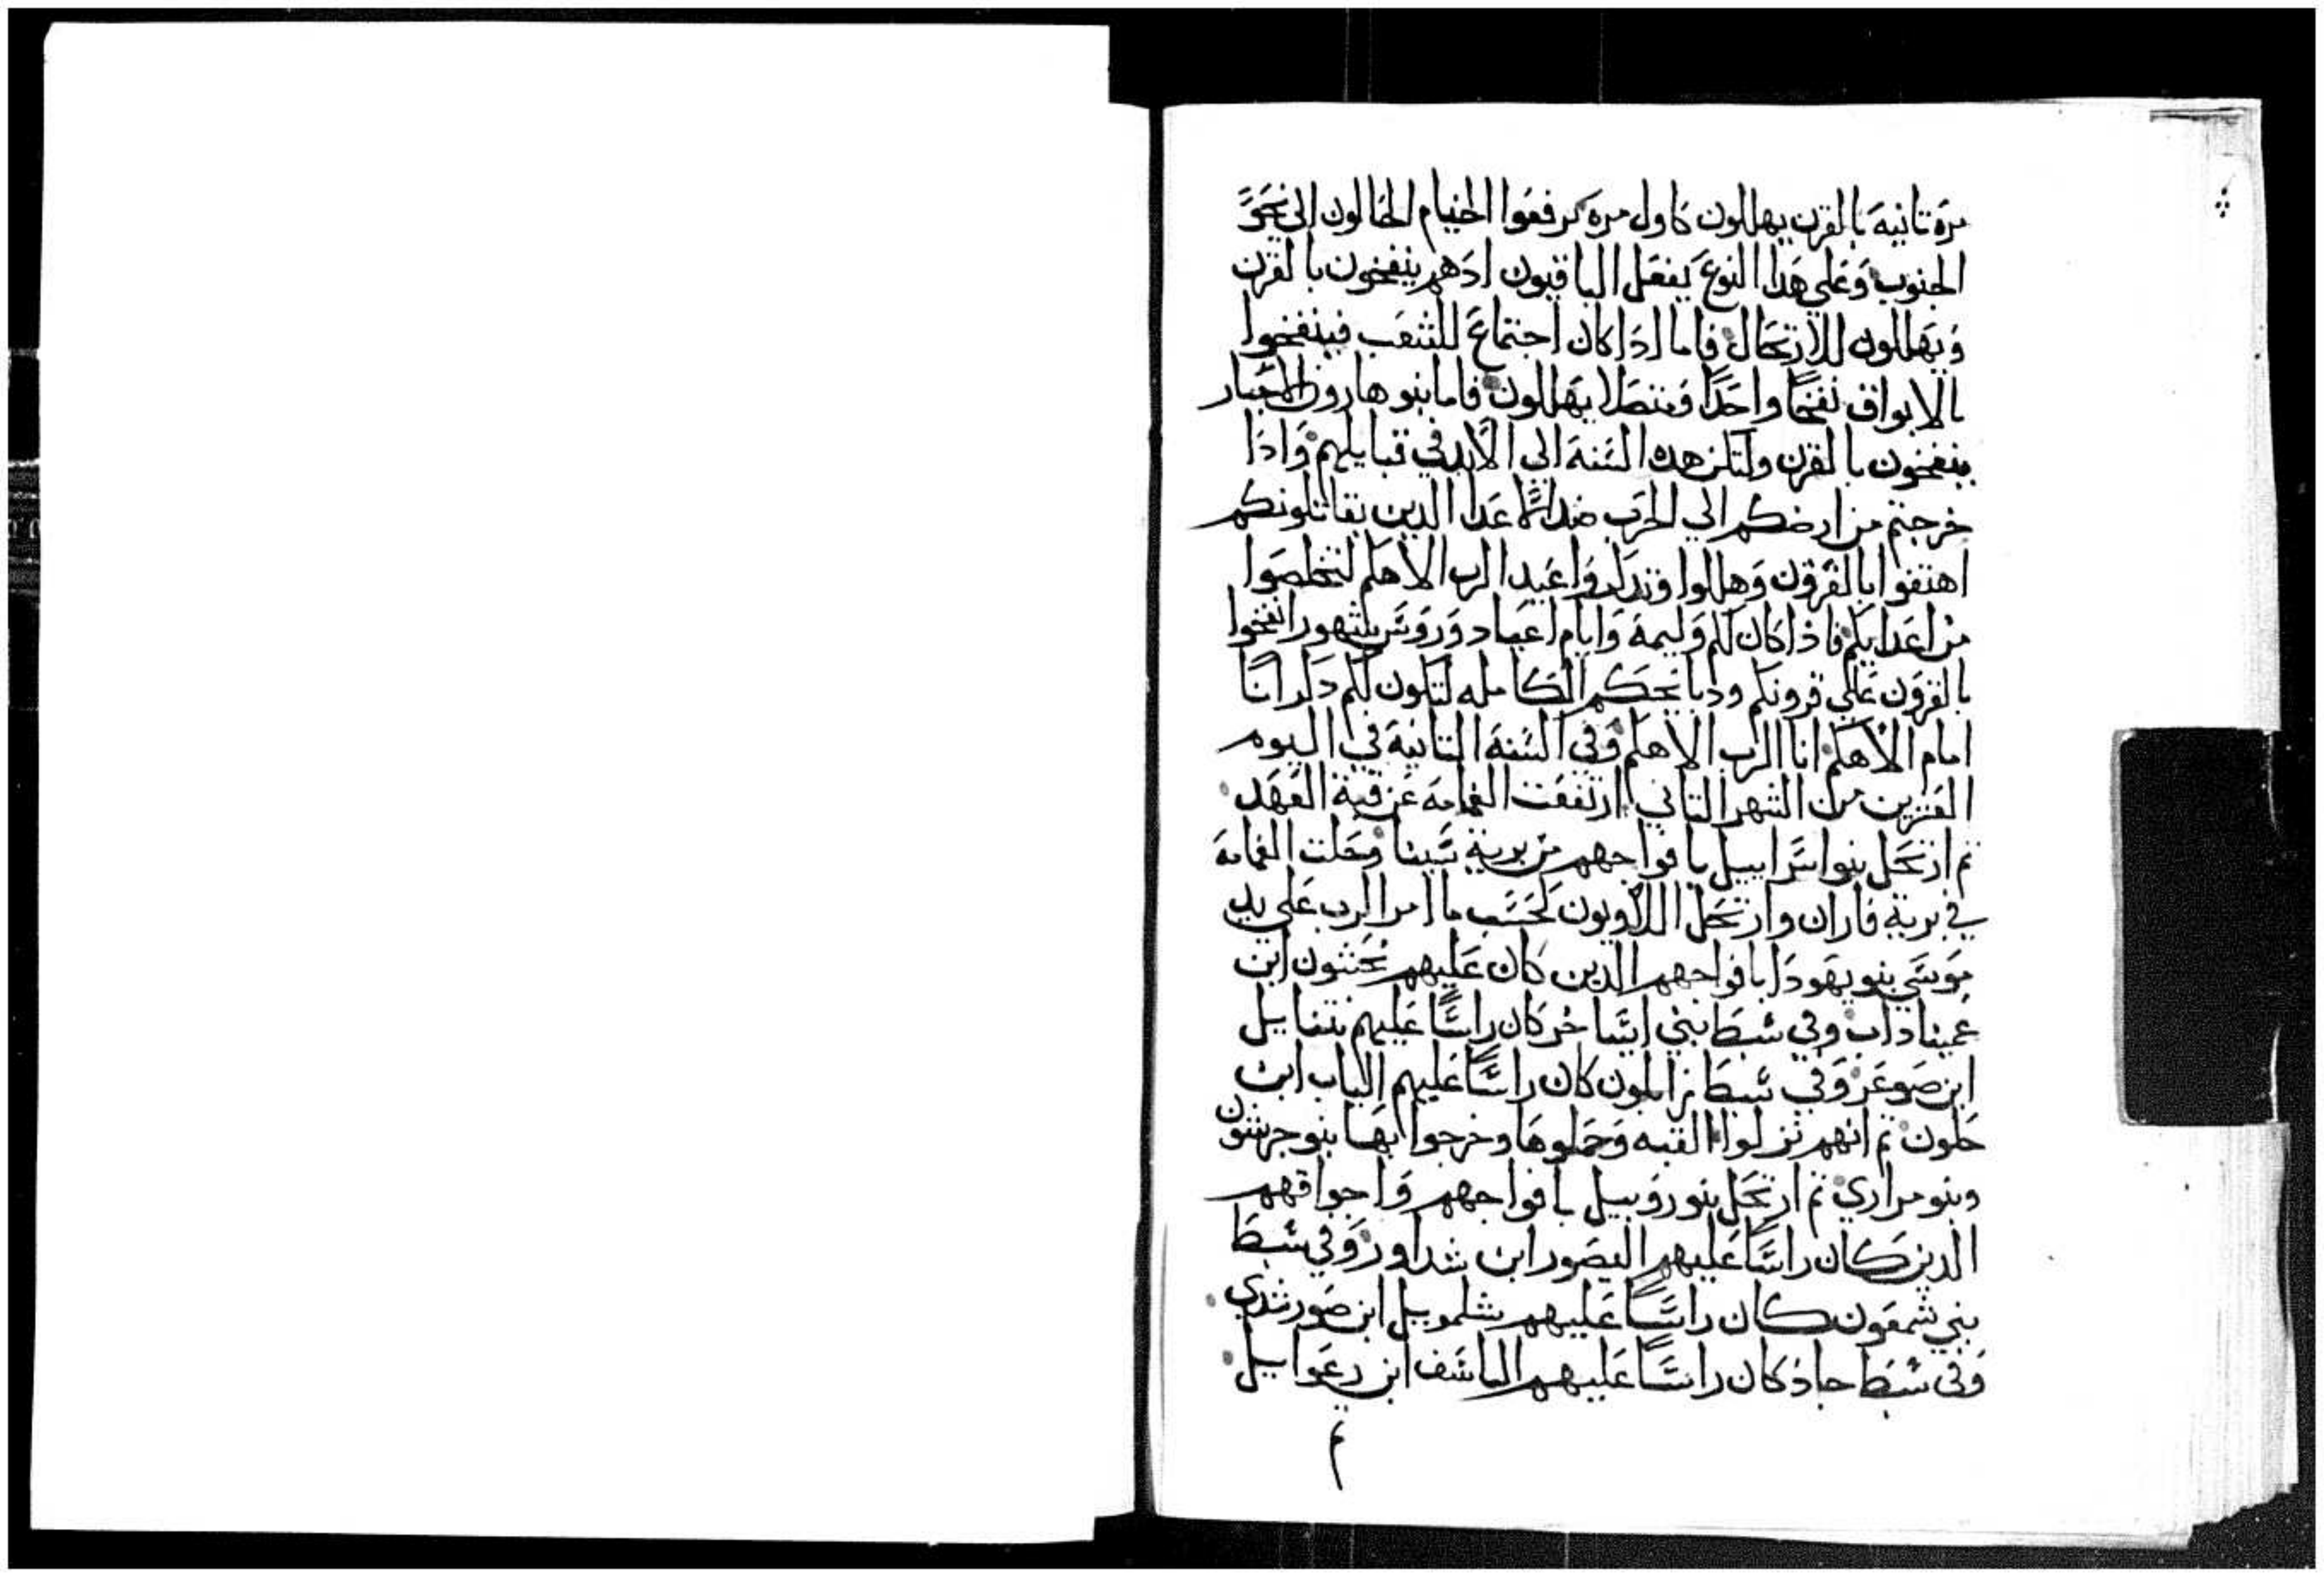 مرة تانية بالقرن يهللون كاول مرة يرفعوا الخيام الحالون الى نحو
الجنوب وعلى هدا النوع يفعل الباقيون ادهم ينفخون بالقرن
ويهللون للارتحال فاما ادا كان اجتماع للشعب فينفخوا
بالابواق نفخا واحدا ومتصلا يهللون فاما بنو هارون الاحبار
ينفخون بالقرن ولتكن هده السنة الى الابد في قبايلهم وادا
خرجتم من ارضكم الى الحرب ضد الاعدا الدين يقاتلونكم
اهتفوا بالقرون وهللوا وتدكروا عيد الرب الاهكم لتخلصوا
من اعدايكم فاذا كان لكم وليمة وايام اعياد وروس شهور انفخوا
بالقرون على قرونكم ودبايحكم الكاملة لتكون لكم دكرانا
امام الاهكم انا الرب الاهكم وفي السنة التانية في اليوم
العشرين من الشهر التاني ارتفعت الغمامة عن قبة العهد
تم ارتحل بنو اسراييل بافواجهم من برية سينا وحلت الغمامة
في برية فاران وارتحل اللاويون كحسب ما امر الرب على يد
موسى بنو يهودا بافواجهم الدين كان عليهم نحشون ابن
عميناداب وفي سبط بني ايساخر كان راسا عليهم نتناييل
ابن صوعر وفي سبط زابلون كان راسا عليهم الياب ابن
حلون تم انهم نزلوا القبه وحملوها وخرجوا بها بنو جرشون
وبنو مراري تم ارتحل بنو روبيل بافواجهم واجواقهم
الدين كان راسا عليهم اليصور ابن شداور وفي سبط
بني شمعون كان راسا عليهم شلموييل ابن صورشدي
وفي سبط جاد كان راسا عليهم الياشف ابن رعواييل
تم